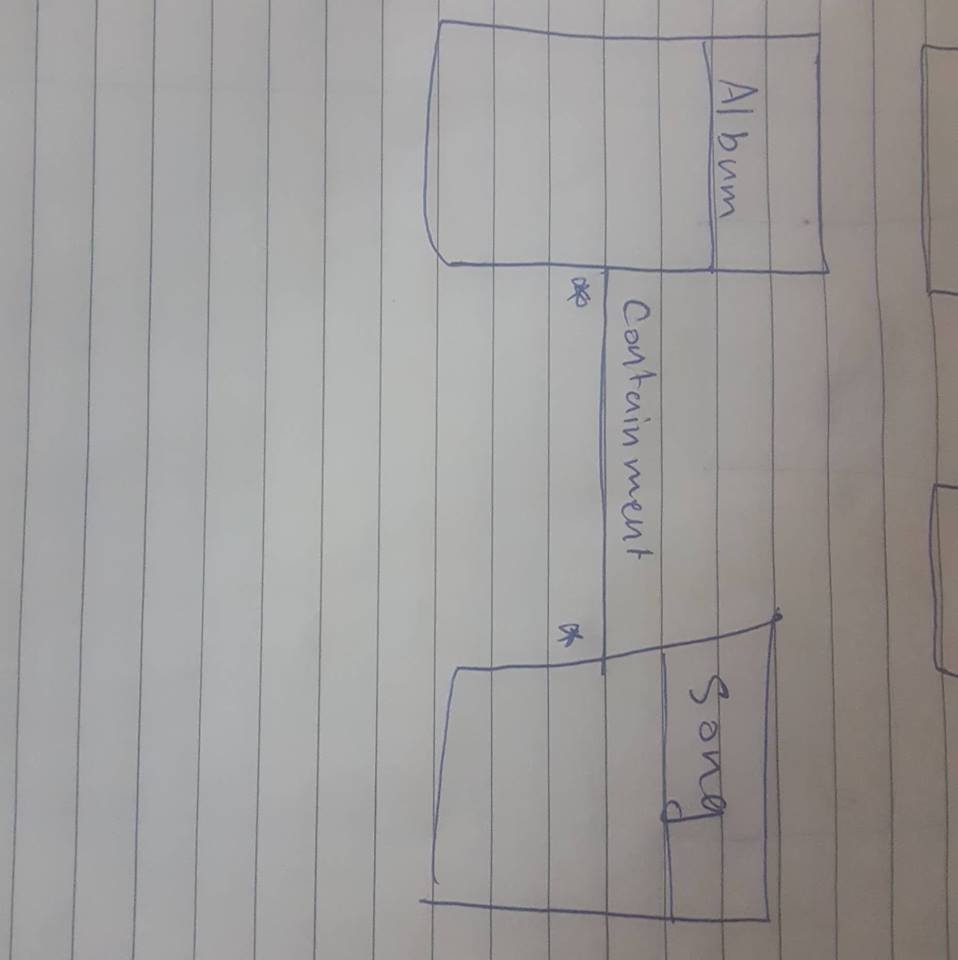 Album
Containment
*
*
Song